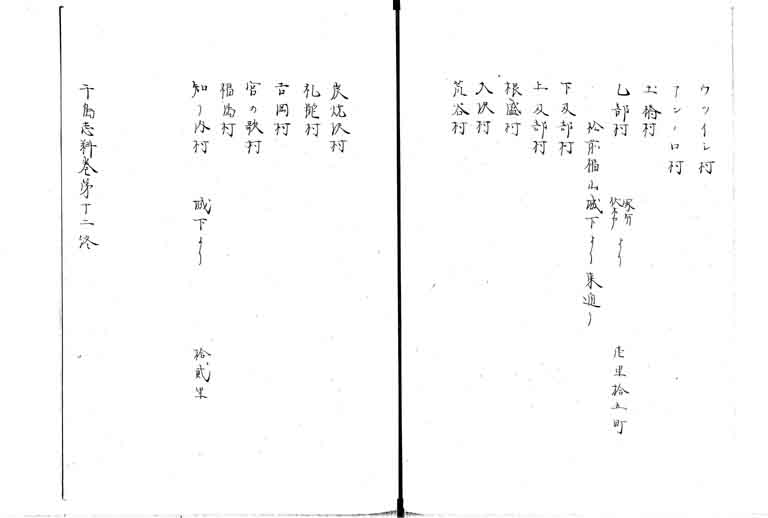 ウツイシ村
アンノロ村
土橋村
乙部村
塚ゟ
伏木戸
より
壱里拾五町
松前福山城下より東通り
下及部村
上及部村
根盛村
大沢村
荒谷村
炭焼沢村
礼髭村
吉岡村
宮の歌村
福島村
知り内村　城下より　拾貳里
千島志料巻第十二終